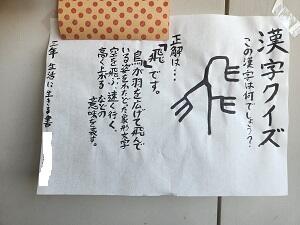 漢字クイズ
この漢字は何でしょう？
正解は…
「飛」です。
鳥が羽を広げて飛んで
いる姿をかたどった象形文字
空を飛ぶ、速く行く、
高く上がる などの
意味を表す。
三年 生活に生きる書